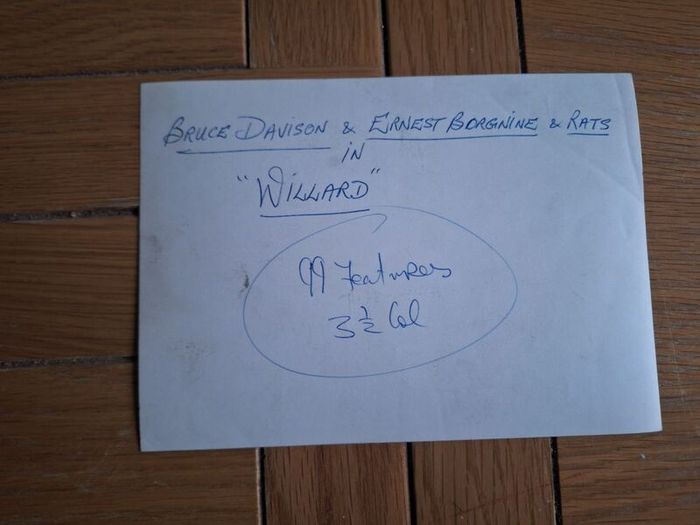 BRUCE DAVISON & ERNEST BORGNINE & RATS
IN
"WILLARD"
99 Features
3 1/2 Col